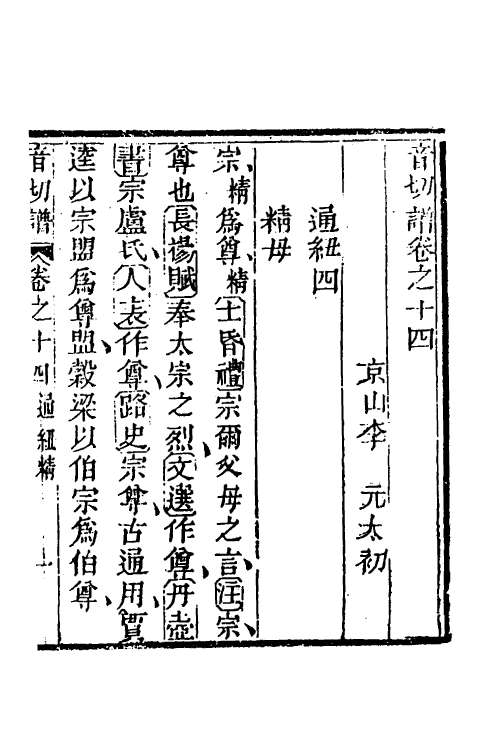 音切譜卷之十四
京山李 元太初
通紐四
精母
宗精爲尊精士昏禮宗爾父母之言注宗
尊也長楊賦奉太宗之烈文選作尊丹壺
書宗盧氏人表作尊路史宗尊古通用賈
逵以宗盟爲尊盟穀梁以伯宗爲伯尊
音切譜 卷之十四通紐精 一